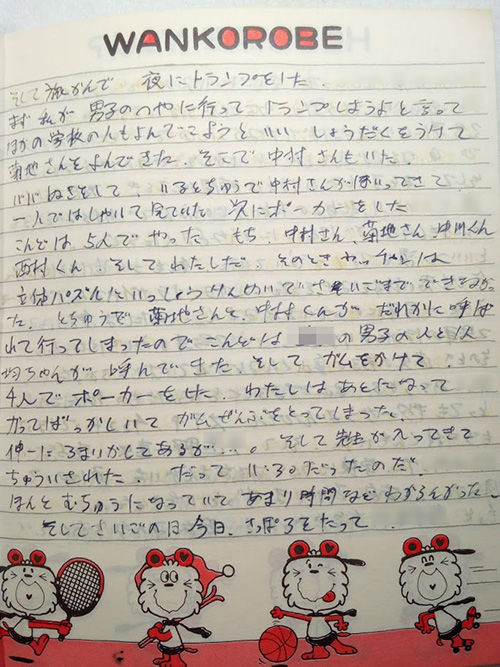 WANKOROBE
そして旅かんで 夜にトランプをした.
まず私が 男子のへやに行って トランプしようよと言って
ほかの学校の人もよんでこようと いい しょうだくをうけて
菊地さんをよんできた. そこで 中村さんもいた
ババぬきをして いるとちゅうで中村さんがはいってきて,
一人ではしゃいで見ていた 次にポーカーをした
こんどは 5人で やった もち, 中村さん, 菊地さん, 中川くん
西村くん そして わたしだ. そのとき
立体パズルにいっしょうけんめいで さいごまで できなかっ
た. とちゅうで 菊地さんと, 中村くんが だれかに呼ば
れて行ってしまったので こんどは の男子の人を1人
ちゃんが 呼んできた そして ガムをかけて.
4人で ポーカーをした わたしは あとになって
かってばっかしいて ガムぜんぶをとってしまった.
そして 先生が入ってきて
ちゅういされた. だって だったのだ.
ほんと むちゅうになっていて あまり時間など わからなかった.
そしてさいごのは 今日. さっぽろをたって.